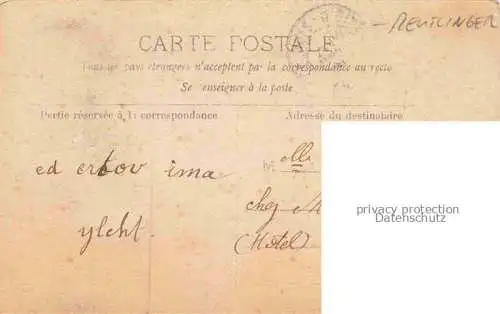 REUTLINGER
CARTE POSTALE
Tous les pays étrangers n'acceptent pas la correspondance au recto
Se renseigner à la poste
Partie réservée à la correspondance
Adresse du destinataire
Melle
ed ertov ima
chez M
yleht.
(Hotel)
privacy protection
Datenschutz